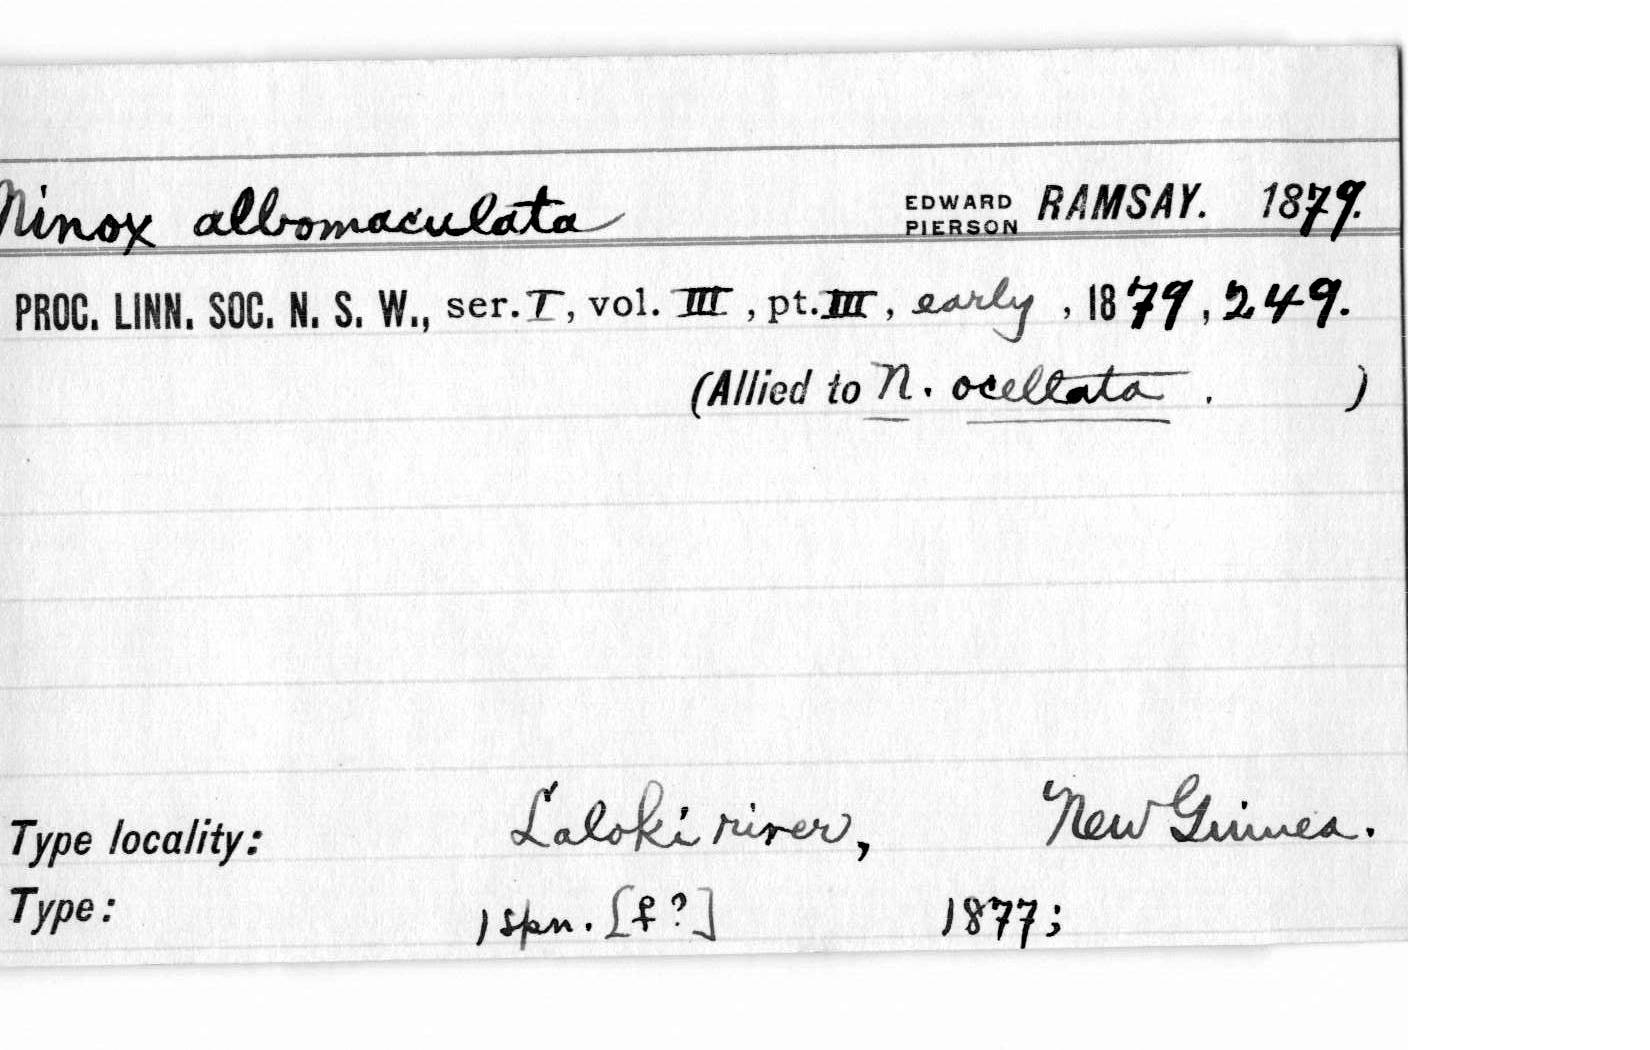 Ninox albomaculata EDWARD PIERSON RAMSAY. 1879.
PROC. LINN. SOC. N. S. W., ser. I, vol. III, pt. III, early, 1879, 249.
(Allied to N. ocellata. )
Type locality: Laloki river, New Guinea.
Type: 1 spn. [♀?] 1877;